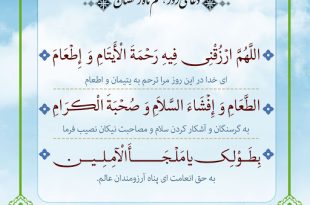 دعای روز هشتم ماه رمضان
اللَّهُمَّ ارْزُقْنِي فِيهِ رَحْمَةَ الْأَيْتَامِ وَ إِطْعَامَ
ای خدا در این روز مرا ترحم به یتیمان و اطعام
الطَّعَامِ وَ إِفْشَاءَ السَّلاَمِ وَ صُحْبَةَ الْكِرَامِ
به گرسنگان و آشکار کردن سلام و مصاحبت نیکان نصیب فرما
بِطَوْلِكَ يَا مَلْجَأَ الْآمِلِينَ
به حق انعامت ای پناه آرزومندان عالم.